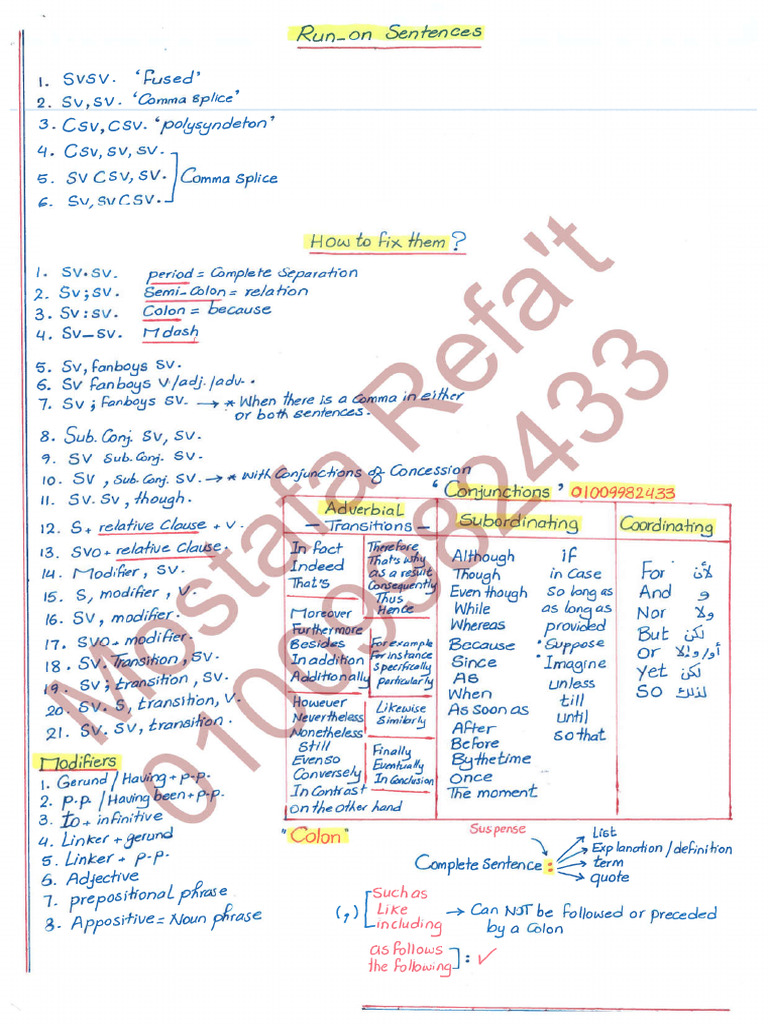 Run-on Sentences
1. SVSV. 'fused'
2. SV, SV. 'Comma splice'
3. CSV, CSV. 'polysyndeton'
4. CSV, SV, SV.
5. SV CSV, SV.
6. SV, SV CSV.
Comma splice
How to fix them?
1. SV. SV. period = Complete Separation
2. SV; SV. Semi-Colon = relation
3. SV: SV. Colon = because
4. SV—SV. M dash
5. SV, fanboys SV.
6. SV fanboys V/adj./adv.
7. SV; Fanboys SV. → * When there is a comma in either
or both sentences.
8. Sub. Conj. SV, SV.
9. SV Sub. Conj. SV.
10. SV, Sub. Conj. SV. → * With Conjunctions of Concession
11. SV. SV, though.
12. S + relative Clause + V.
13. SVO + relative Clause.
14. Modifier, SV.
15. S, modifier, V.
16. SV, modifier.
17. SVO - modifier.
18. SV. Transition, SV.
19. SV; transition, SV.
20. SV. S, transition, V.
21. SV. SV, transition.
Modifiers
1. Gerund / Having + p.p.
2. p.p. / Having been + p.p.
3. to + infinitive
4. Linker + gerund
5. Linker + p.p.
6. Adjective
7. prepositional phrase
8. Appositive = Noun phrase
"Conjunctions" 01009982433
Adverbial
- Transitions -
In fact
Indeed
That's
Moreover
Furthermore
Besides
In addition
Additionally
However
Nevertheless
Nonetheless
Still
Even so
Conversely
In Contrast
on the other hand
Therefore
That's why
as a result
Consequently
Thus
Hence
For example
For instance
specifically
particularly
Likewise
Similarly
Finally
Eventually
In Conclusion
Subordinating
Although
Though
Even though
While
Whereas
Because
Since
AS
When
As Soon as
After
Before
By the time
Once
The moment
if
in Case
so long as
as long as
provided
• Suppose
• Imagine
unless
till
until
so that
Coordinating
For لأن
And و
Nor ولا
But لكن
or أو/ولا
Yet لكن
So لذلك
"Colon"
Suspense
Complete Sentence :
List
Explanation / definition
term
quote
(,)
Such as
Like
including
→ Can NOT be followed or preceded
by a Colon
as follows
the following
: ✓
Mostafa Refa't
01009982433